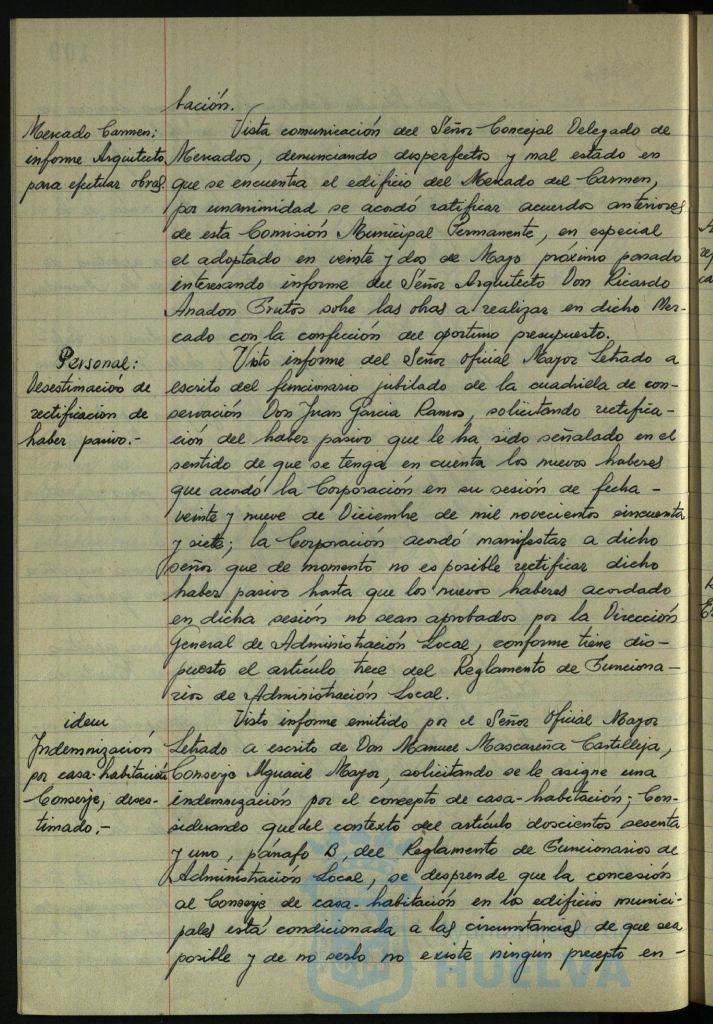 tación.
Mercado Carmen:
informe Arquitecto
para efectuar obras.
Vista comunicación del Señor Concejal Delegado de
Mercados, denunciando desperfectos y mal estado en
que se encuentra el edificio del Mercado del Carmen,
por unanimidad se acordó ratificar acuerdos anteriores
de esta Comisión Municipal Permanente, en especial
el adoptado en veinte y dos de Mayo próximo pasado
interesando informe del Señor Arquitecto Don Ricardo
Anadon Frutos sobre las obras a realizar en dicho Mer-
cado con la confección del oportuno presupuesto.
Personal:
Desestimación de
rectificación de
haber pasivo.-
Visto informe del Señor Oficial Mayor Letrado a
escrito del funcionario jubilado de la cuadriela de con-
servación Don Juan Garcia Ramos, solicitando rectifica-
ción del haber pasivo que le ha sido señalado en el
sentido de que se tenga en cuenta los nuevos haberes
que acordó la Corporación en su sesión de fecha -
veinte y nueve de Diciembre de mil novecientos cincuenta
y siete; la Corporación acordó manifestar a dicho
señor que de momento no es posible rectificar dicho
haber pasivo hasta que los nuevos haberes acordado
en dicha sesión no sean aprobados por la Dirección
General de Administración Local, conforme tiene dis-
puesto el artículo trece del Reglamento de Funciona-
rios de Administración Local.
idem
Indemnización
por casa-habitación
Conserje, deses-
timado.-
Visto informe emitido por el Señor Oficial Mayor
Letrado a escrito de Don Manuel Mascareña Castilleja,
Conserje Alguacil Mayor, solicitando se le asigne una
indemnización por el concepto de casa-habitación; Con-
siderando que del contexto del artículo doscientos sesenta
y uno, párrafo B, del Reglamento de Funcionarios de
Administración Local, se desprende que la concesión
al Conserje de casa-habitación en los edificios munici-
pales está condicionada a las circunstancias de que sea
posible y de no serlo no existe ningún precepto en -
HUELVA